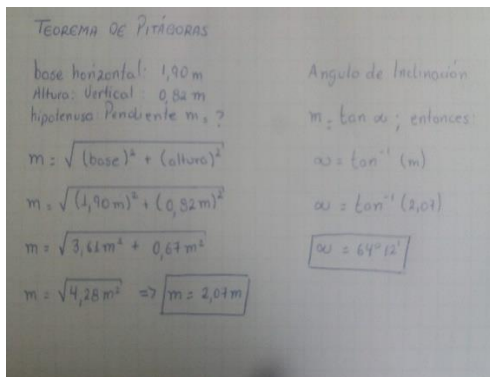 TEOREMA DE PITÁGORAS
base horizontal: 1,90 m
Altura: Vertical: 0,82 m
hipotenusa: Pendiente m = ?
m = √(base)² + (altura)²
m = √(1,90 m)² + (0,82 m)²
m = √3,61 m² + 0,67 m²
m = √4,28 m² => m = 2,07 m
Angulo de Inclinación
m = tan α ; entonces:
α = tan⁻¹ (m)
α = tan⁻¹ (2,07)
α = 64° 12'